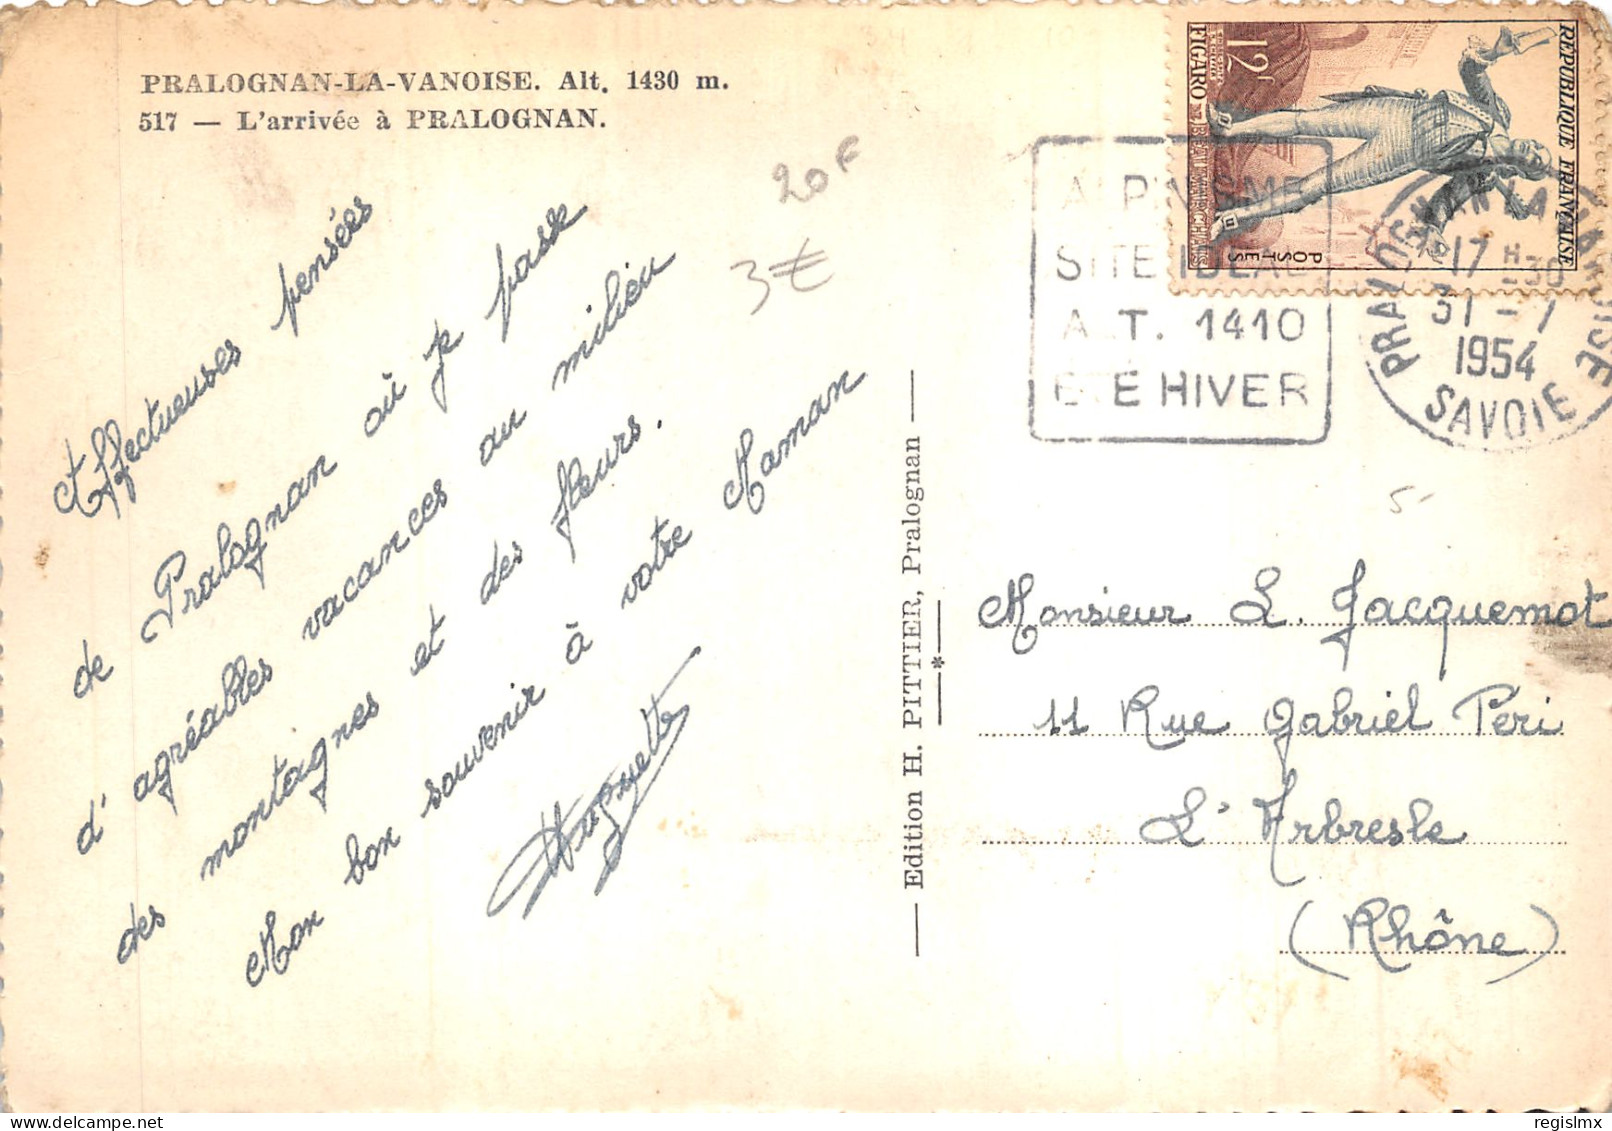 PRALOGNAN-LA-VANOISE. Alt. 1430 m.
517 — L'arrivée à PRALOGNAN.
20F
3€
Affectueuses pensées
de Pralognan où je passe
d'agréables vacances au milieu
des montagnes et des fleurs.
Mon bon souvenir à votre Maman
Huguette
— Edition H. PITTIER, Pralognan —
REPUBLIQUE FRANÇAISE
12F
FIGARO
BEAUMARCHAIS
POSTES
ALPINISME
SITE IDEAL
ALT. 1410
ETE HIVER
PRALOGNAN LA VANOISE
17 H -30
31 - 7
1954
SAVOIE
5-
Monsieur L. Jacquemot
11 Rue Gabriel Peri
L'Arbresle
(Rhône)
regislmx